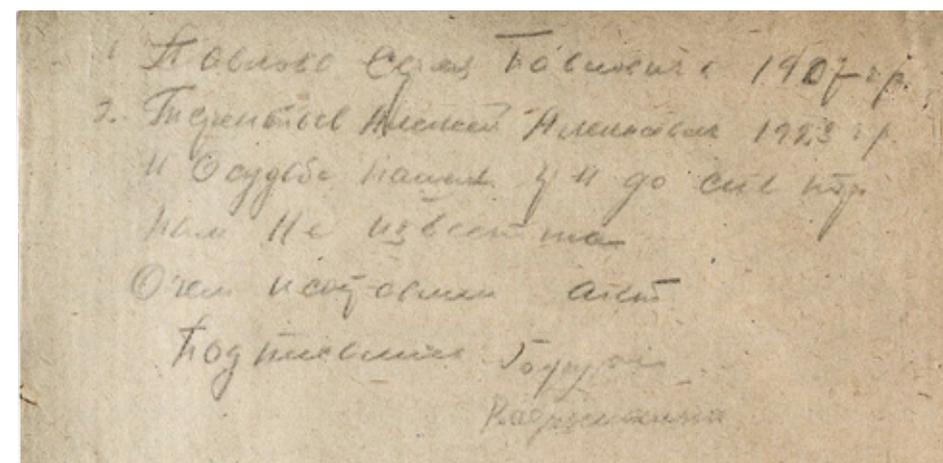 1 Павлова Павловича 1907 г.р.
2. Терентьев Алексей Алексеевич 1923 г.р.
и О судьбе до сих пор
нам не известна
О чем и составлен акт
Подписали